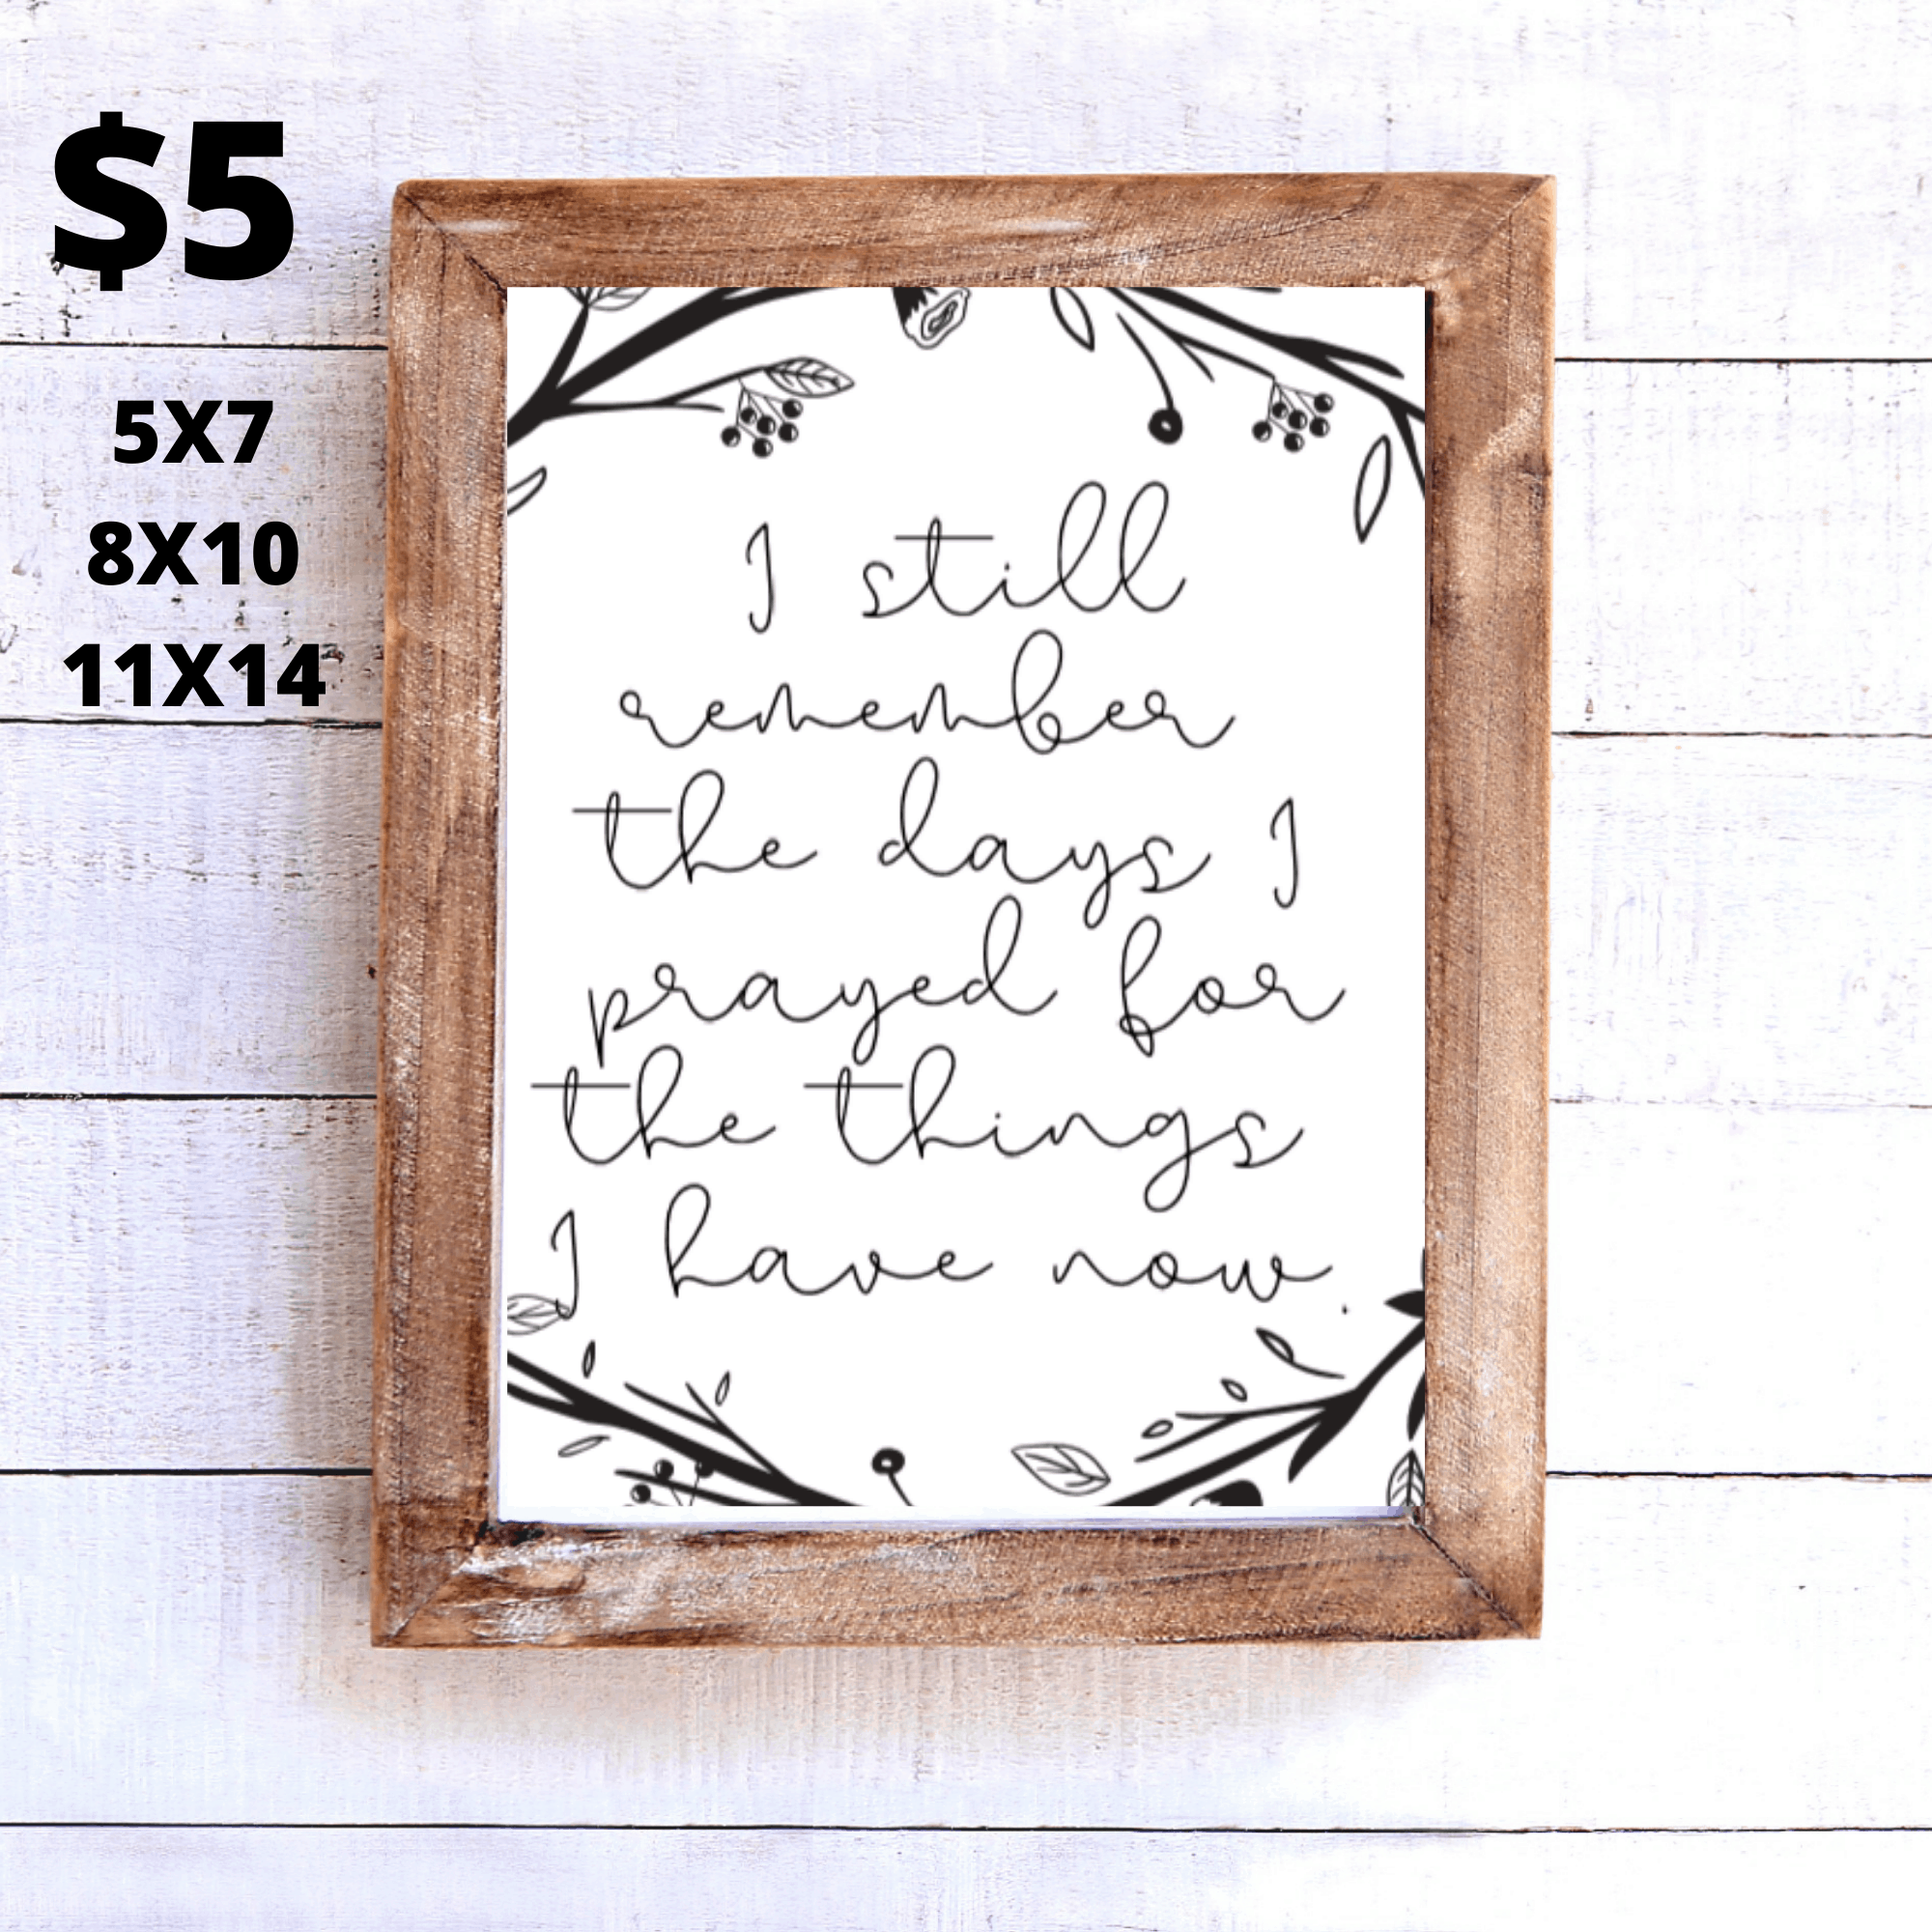 $5
5X7
8X10
11X14
I still
remember
the days I
prayed for
the things
I have now.